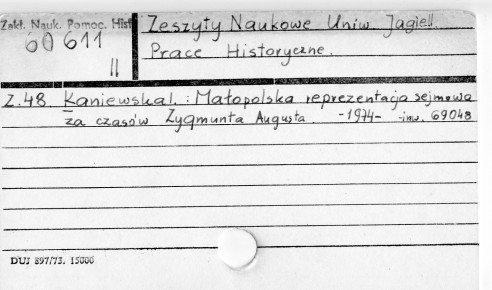 Zakł. Nauk. Pomoc. Hist
60 611
II
Zeszyty Naukowe Uniw. Jagiell.
Prace Historyczne.
Z.48. Kaniewska I. : Małopolska reprezentacja sejmowa
za czasów Zygmunta Augusta. -1974- -inw. 69048
DUJ 897/73. 15000